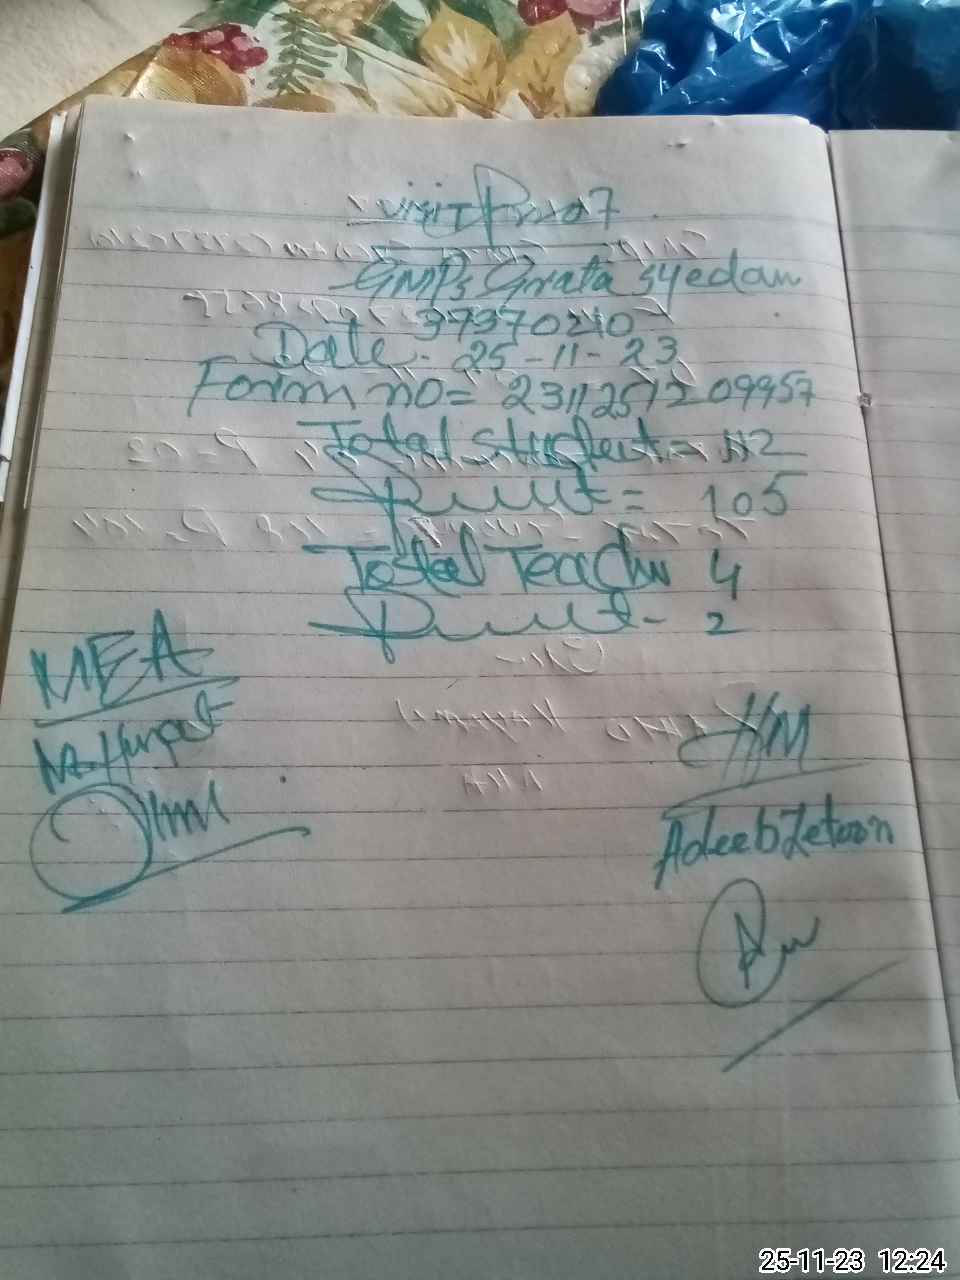 visit P no 07
GMPS Grata Syedan
37370210
Date - 25-11-23
Form no = 2311251209957
Total Student = 112
Present = 105
Total Teacher 4
Present - 2
MEA
HM
Adeeb Zetoon
25-11-23 12:24